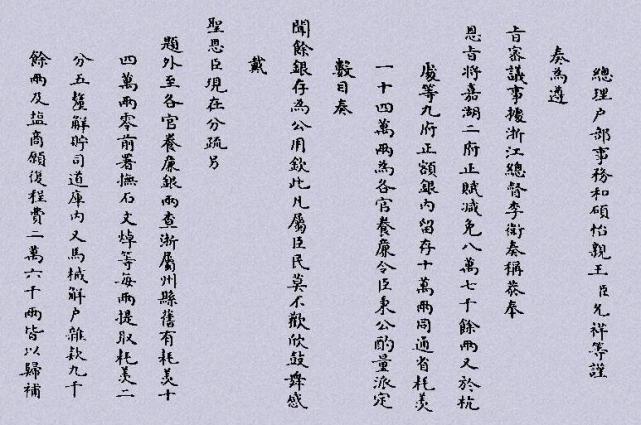 總理戶部事務和碩怡親王臣允祥等謹
奏為遵
旨審議事據浙江總督李衛奏稱恭奉
恩旨將嘉湖二府正賦減免八萬七千餘兩又於杭
處等九府正額銀內留存十萬兩同通省耗羨
一十四萬兩為各官養廉令臣秉公酌量派定
數目奏
聞餘銀存為公用欽此凡屬臣民莫不歡欣鼓舞感
戴
聖恩臣現在分疏另
題外至各官養廉銀兩查浙屬州縣舊有耗羨十
四萬兩零前署撫石文焯等每兩提取耗羨二
分五釐解貯司道庫內又馬械解戶雜款九千
餘兩及盐商願復程費二萬六千兩皆以歸補